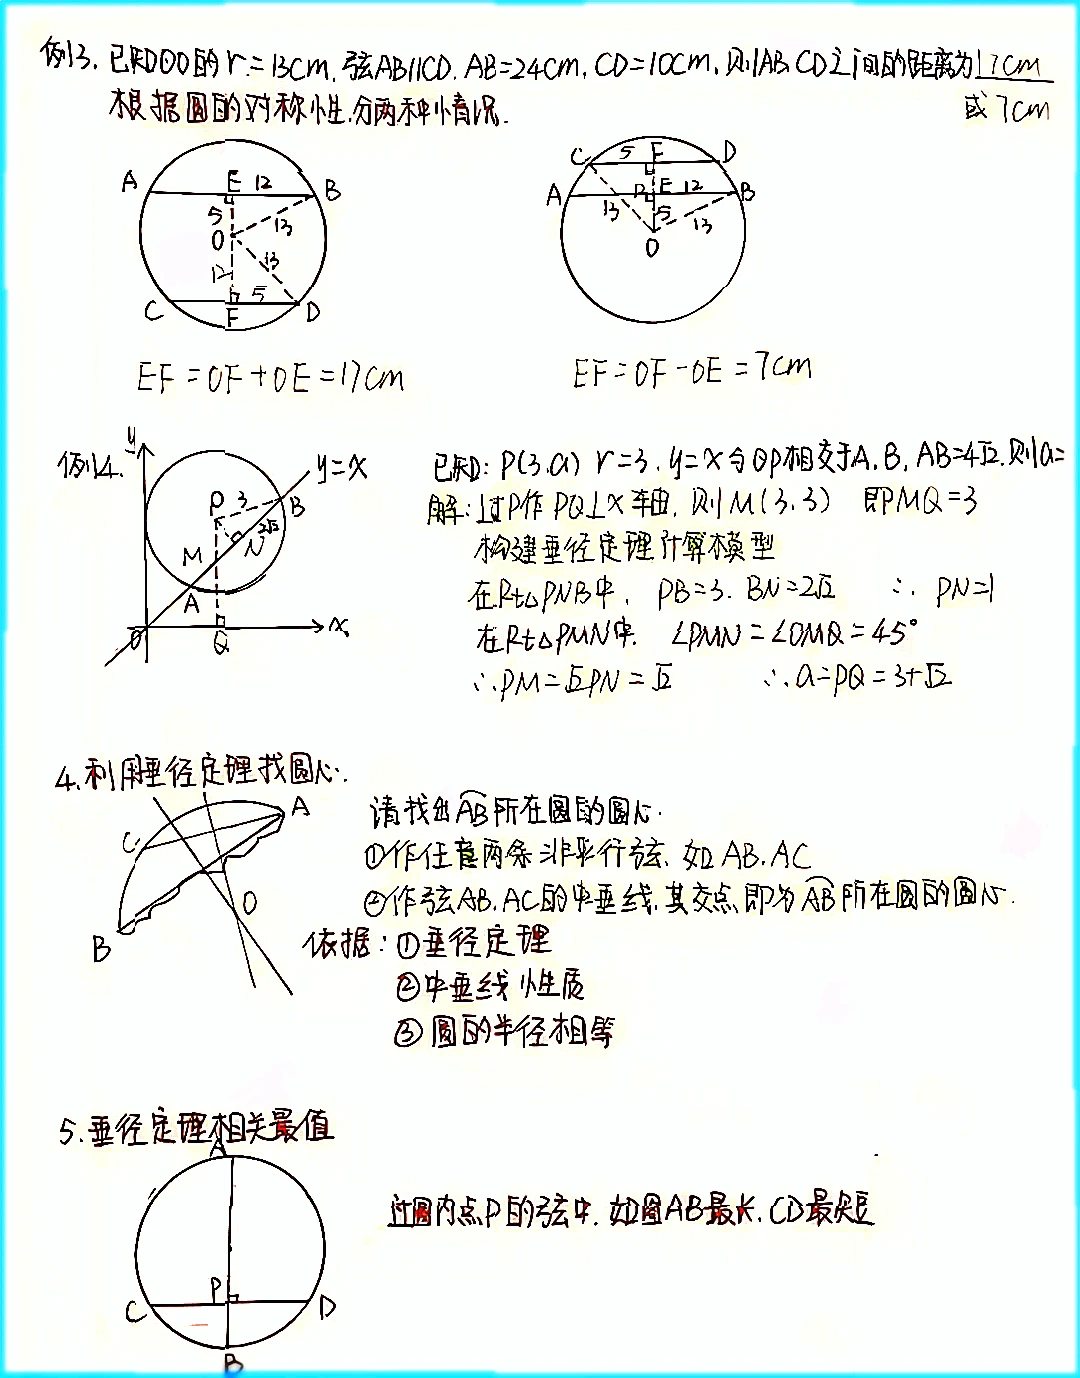 例3. 已知⊙O的r=13cm, 弦AB∥CD. AB=24cm, CD=10cm, 则AB、CD之间的距离为17cm
根据圆的对称性.分两种情况. 或7cm
A E 12 B
5
O 13
13
12
C F 5 D
C 5 F D
A E 12 B
13 5 13
O
EF=OF+OE=17cm
EF=OF-OE=7cm
例4.
y
y=x
P 3 B
2√2
M N
A
O Q x
已知: P(3,a) r=3, y=x与⊙P相交于A,B, AB=4√2.则a=
解: 过P作PQ⊥x轴, 则M(3,3) 即MQ=3
构建垂径定理计算模型
在Rt△PNB中, PB=3. BN=2√2 ∴ PN=1
在Rt△PMN中. ∠PMN=∠OMQ=45°
∴PM=√2PN=√2 ∴a=PQ=3+√2
4.利用垂径定理找圆心.
A
C
O
B
请找出AB所在圆的圆心.
①作任意两条非平行弦, 如AB.AC
②作弦AB.AC的中垂线,其交点即为AB所在圆的圆心.
依据: ①垂径定理
②中垂线性质
③圆的半径相等
5.垂径定理相关最值
A
P
C D
B
过圆内点P的弦中, 如图AB最长, CD最短